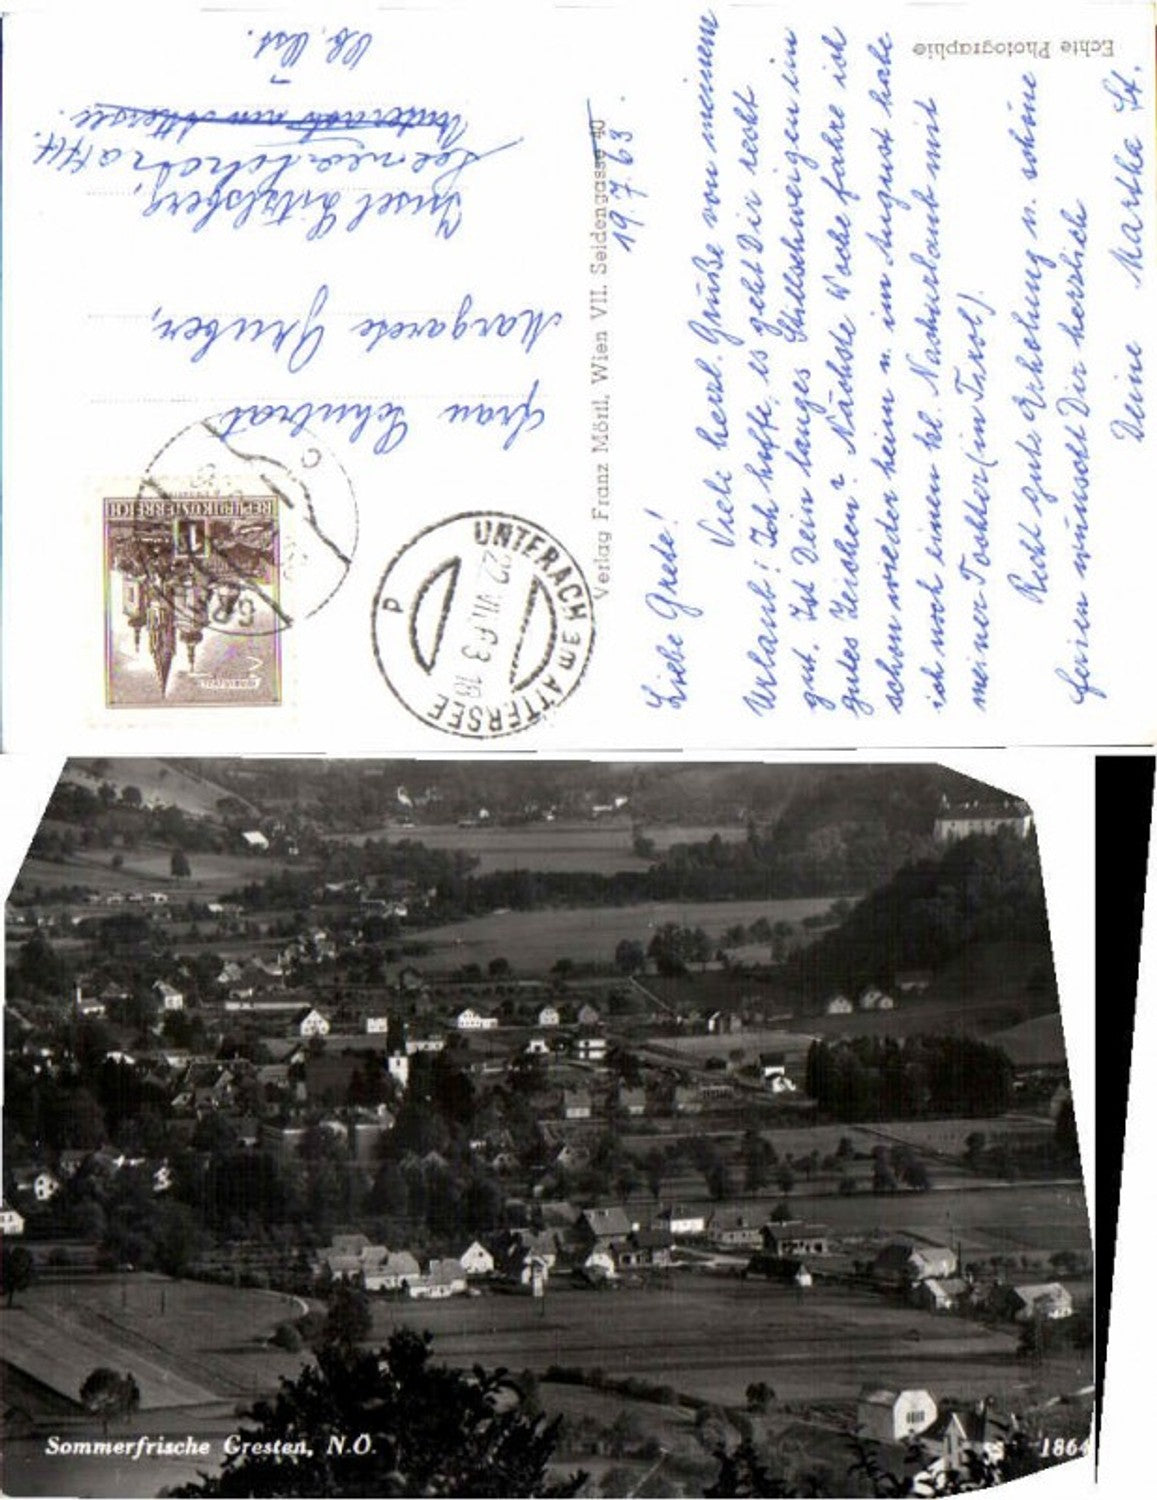 Echte Photographie
19.7.63.
Liebe Grete!
Viele herzl. Grüße von meinem
Urlaub! Ich hoffe, es geht Dir recht
gut. Ist Dein langes Stillschweigen ein
gutes Zeichen? Nächste Woche fahre ich
schon wieder heim u. im August habe
ich noch einen kl. Nachurlaub mit
meiner Tochter (in Tirol).
Recht gute Erholung u. schöne
Ferien wünscht Dir herzlich
Deine Martha St.
Verlag Franz Mörtl, Wien VII. Seidengasse 40
REPUBLIK ÖSTERREICH
1
MARIAZELL
UNTERACH am ATTERSEE
22.VII.63 18
P
Frau Schulrat
Margarete Gruber,
Insel Litzlberg,
Seewalchen a/Att.
Unterach am Attersee.
Ob. Öst.
Sommerfrische Gresten, N.Ö.
1864